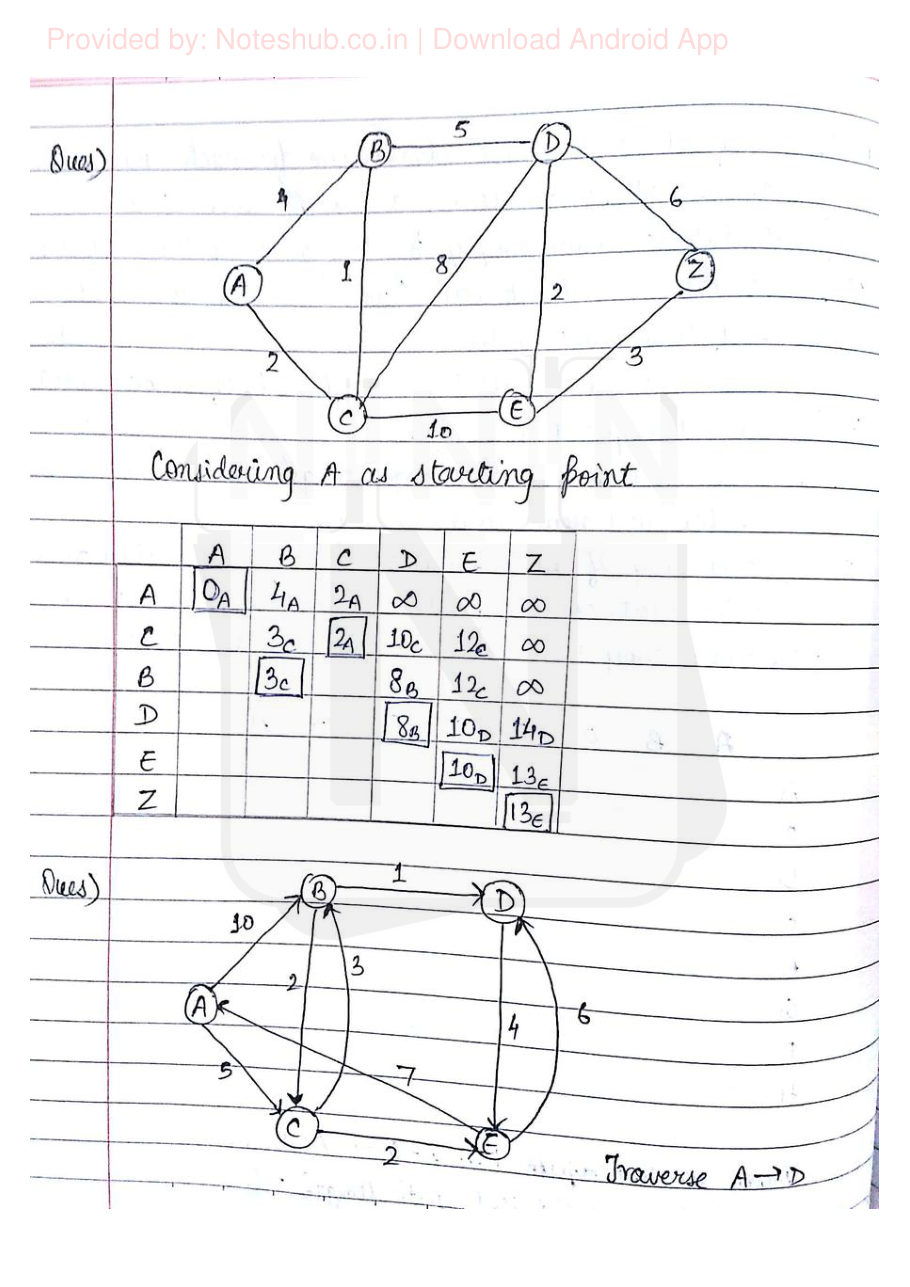 Provided by: Noteshub.co.in | Download Android App
Ques)
B 5 D
4 6
A 1 8 2 Z
2 3
C 10 E
Considering A as starting point
A B C D E Z
A 0A 4A 2A ∞ ∞ ∞
C 3C 2A 10C 12C ∞
B 3C 8B 12C ∞
D 8B 10D 14D
E 10D 13E
Z 13E
Ques)
B 1 D
10
2 3
A 4 6
5 7
C 2 E
Traverse A→D